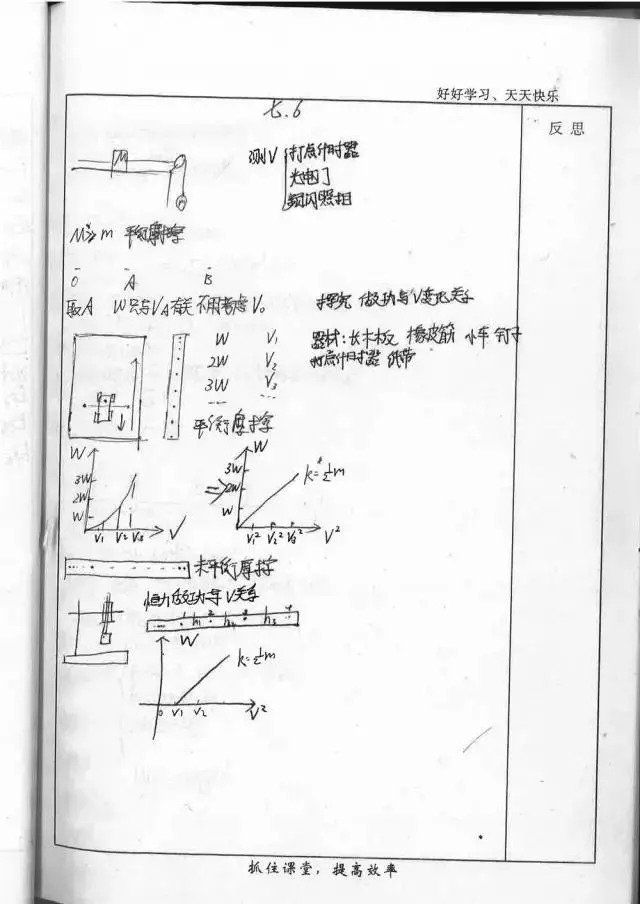 好好学习、天天快乐
反思
七.6
M
m
测V 打点计时器
光电门
频闪照相
M≫m 平衡摩擦
O A B
取A W只与VA有关 不用考虑V0
探究 做功与V变化关系
器材：长木板 橡皮筋 小车 钉子
打点计时器 纸带
W V1
2W V2
3W V3
平衡摩擦
W
3W
2W
W
V1 V2 V3 V
⇒
W
3W
2W
W
k=½m
V1² V2² V3² V²
未平衡摩擦
恒力做功与V关系
h1 h2 h3
W
k=½m
0 V1 V2 V²
抓住课堂，提高效率